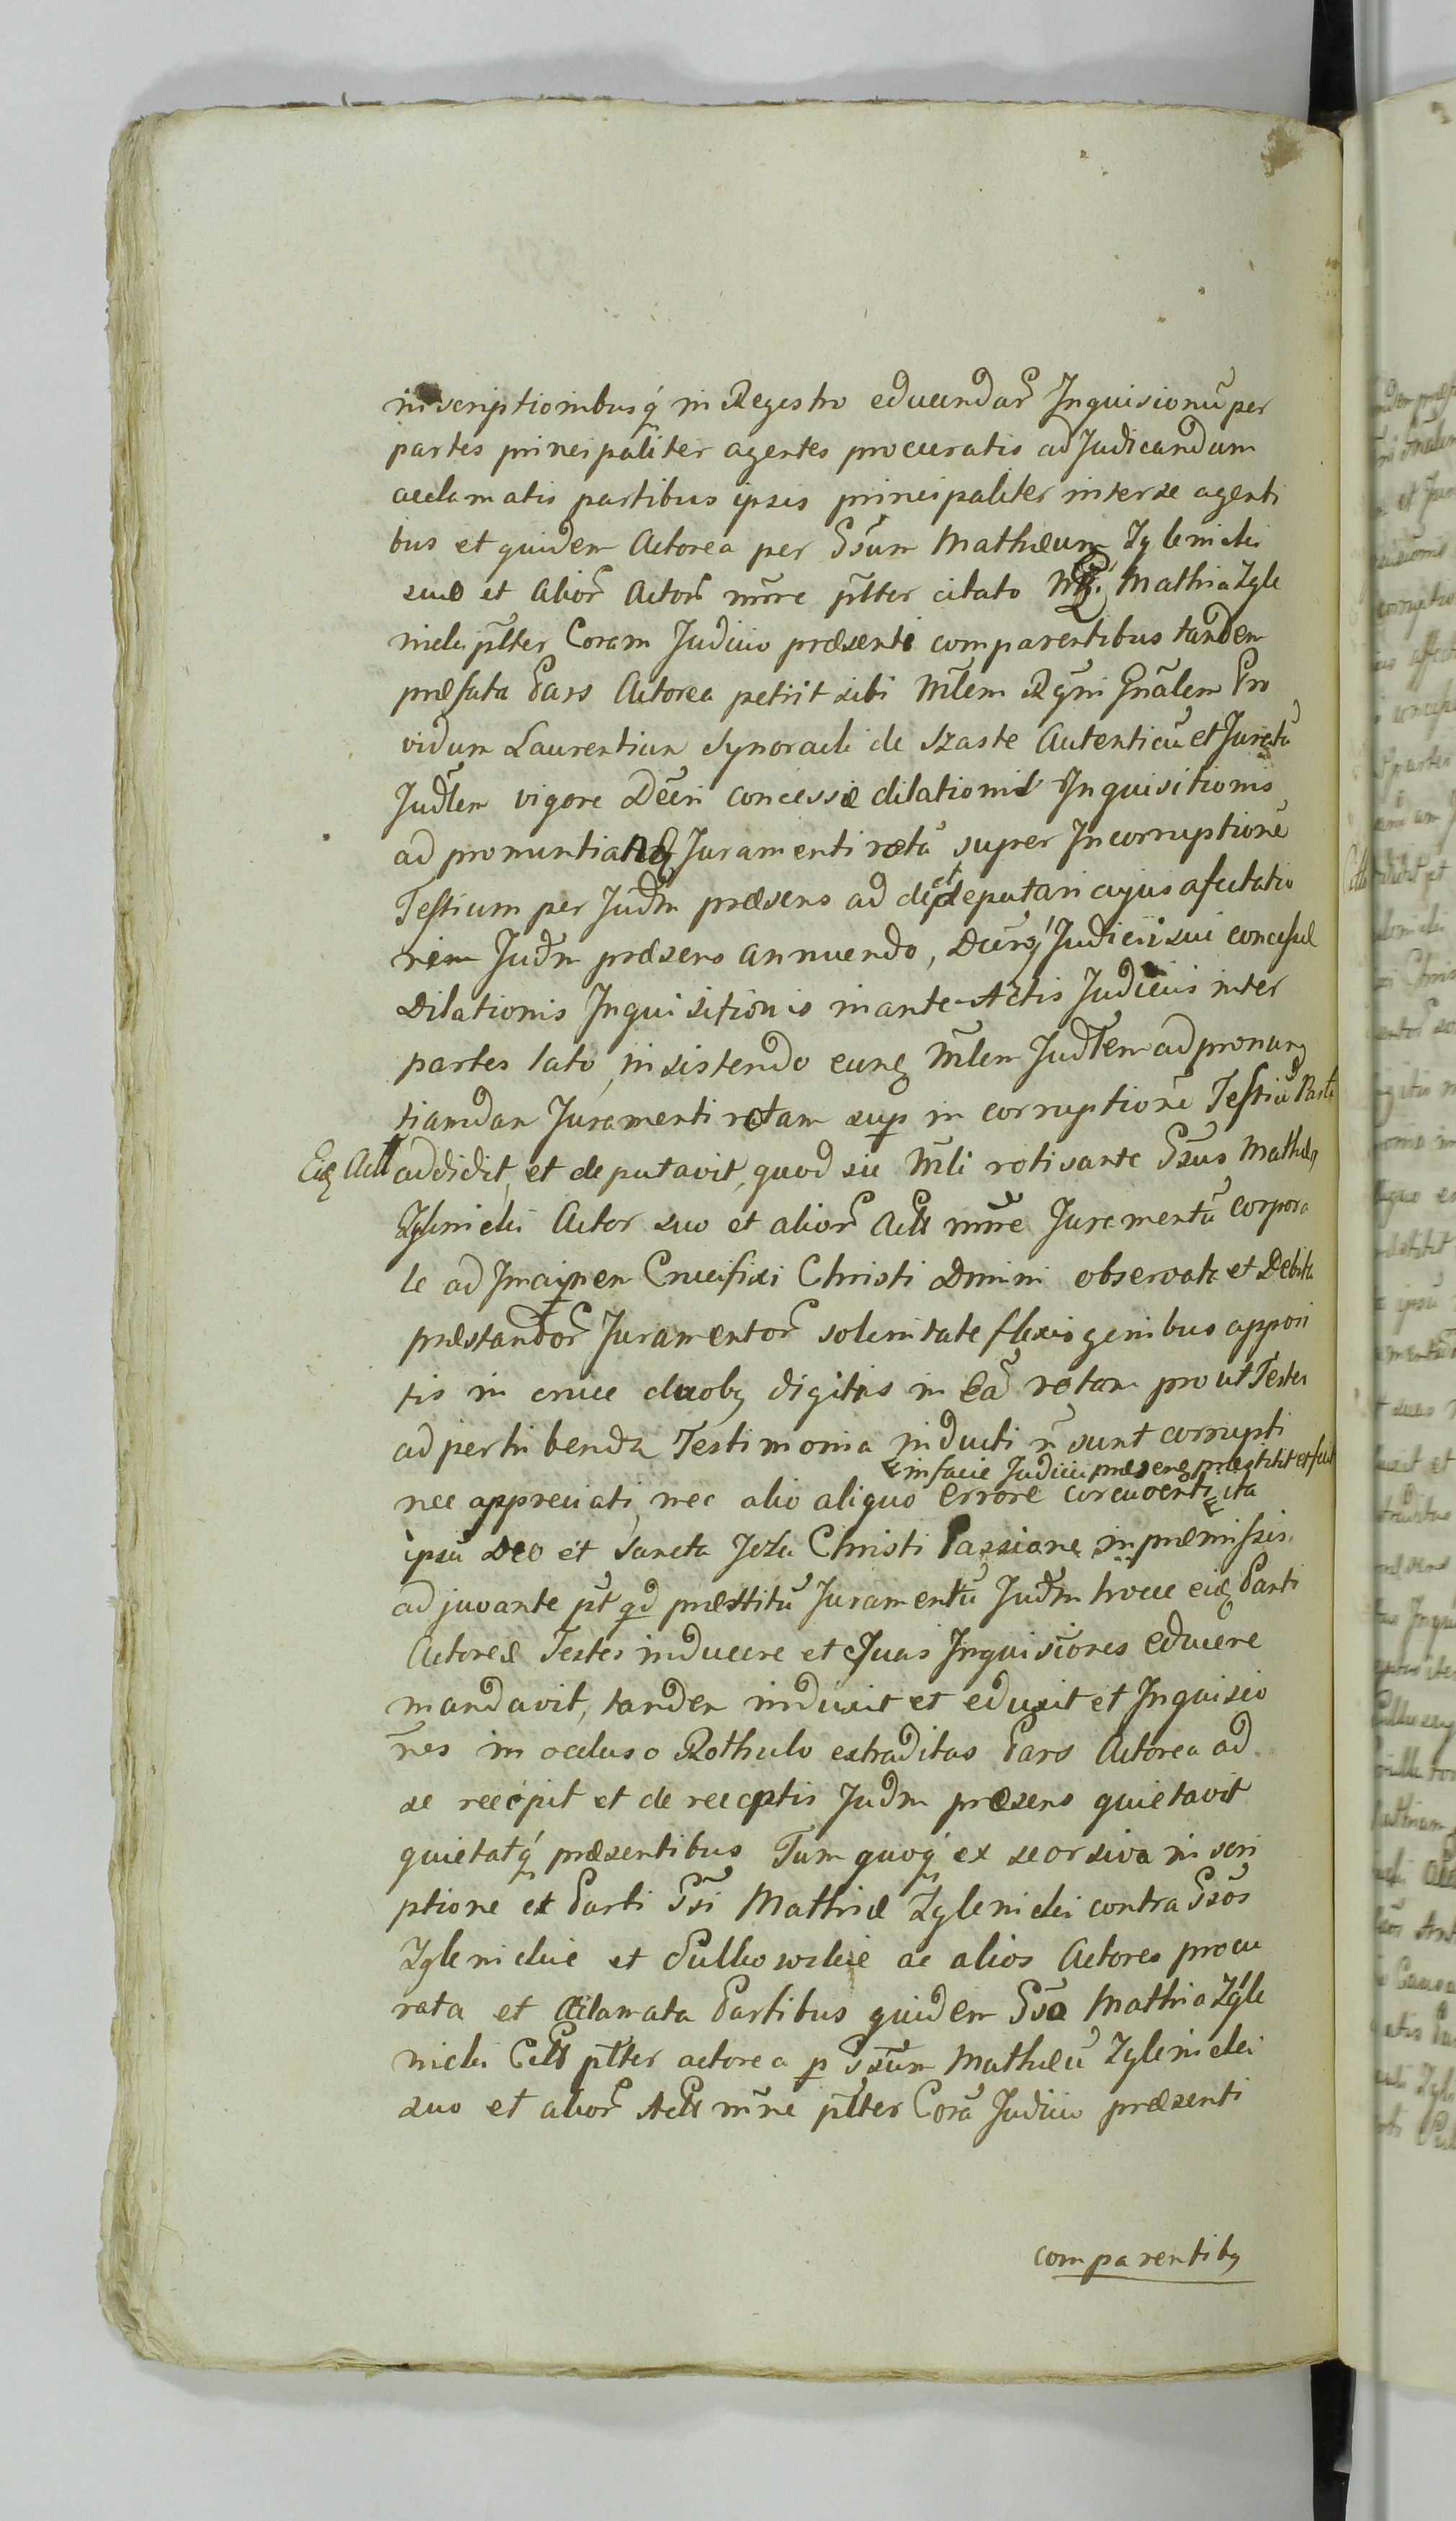 inscriptionibusq́ in Regestro educendar̃ Inquisionũ per
partes principaliter agentes procuratis ad Judicandum
acclamatis partibus ipsis principaliter inter se agenti
bus et quidem Actorea per Gs̃um Mathæum Zglenicki
suo et alior̃ Actor̃ nñre pl̃ter citato Mathia Zgle
nicki pl̃ter Coram Judicio præsenti comparentibus tandem
præfata Pars Actorea petiit sibi Ml̃em Rg̃ni Gnãlem Pro
vidum Laurentium Synoradi de Szaste Autenticũ et Juratũ
Jud̃lem vigore Decr̃i concessæ dilationis Inquisitionis
ad pronuntiand Juramenti rotã super Incorruptionẽ
Testium per Jud̃m præsens ad et deputari cujus afectatio
nem Jud̃m præsens annuendo, Decrq́ Judicii sui concessæ
Dilationis Inquisitionis in ante Actis Judiciis inter
partes lato, insistendo eunḡ Ml̃em Jud̃lem ad pronun
tiandam Juramenti rotam sup in corruptionẽ Testiũ Parti
Eid Act addidit, et deputavit, quod sic Ml̃i rotisante Gs̃us Mathæ
Zglenicki Actor suo et alior̃ Act nñre Juramentũ corpora
le ad Imaginem Crucifixi Christi Dmini observata et Debita
præstandor̃ Juramentor̃ solenitate flexis genibus apposi
tis in cruce duobȝ digitis in Eã rotam prout Testes
ad perhibenda Testimonia inducti ñ sunt corrupti
in facie Judicii præsenȝ præstitit et fecit
nec appreciati, nec alio aliquo errore circũventi, ita
ipsũ Deo et Sancta Jezu Christi Passione in præmissis
adjuvante pt̃ qd præstitũ Juramentũ Jud̃m hocce eid Parti
Actoreæ Testes inducere et suas Inquisiones educere
mandavit, tandem induxit et eduxit et Inquisio
nes in occluso Rothulo extraditas Pars Actorea ad
se reecpit et de receptis Judm præsens quietavit
quietatq́ præsentibus Tum quoq́ ex seorsiva inscri
ptione ex Parti Gs̃i Mathiæ Zglenicki contra Gsõs
Zglenickie et Pulkowskie ac alios Actores procu
rata et Acclamata Partibus quidem Gs̃o Mathia Zgle
nicki Citt pl̃ter actorea p Gsũm Mathæũ Zglenicki
suo et alior̃ Act nñre pl̃ter Corã Judicio præsenti
comparentibȝ